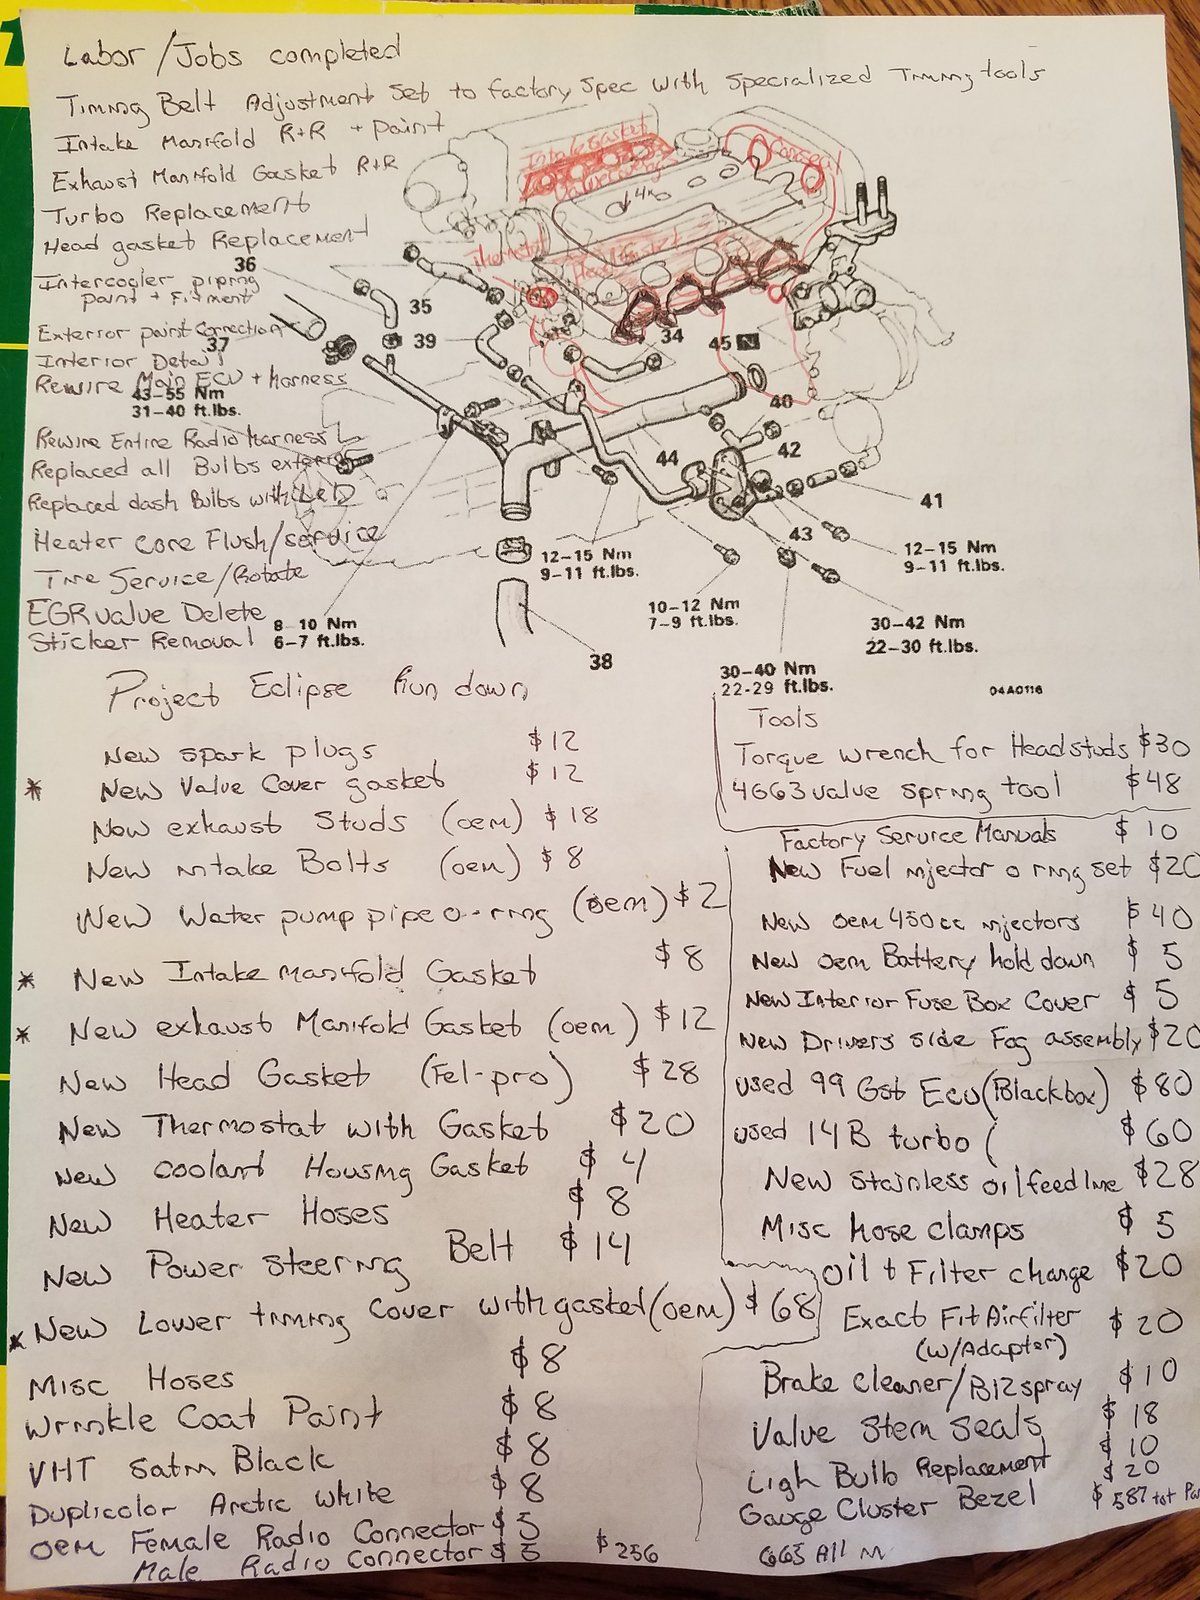 Labor/Jobs completed
Timing Belt Adjustment Set to factory spec with specialized Timing tools
Intake Manifold R+R + paint
Exhaust Manifold Gasket R+R
Turbo Replacement
Head gasket Replacement
Intercooler piping
paint + Fitment
Exterior paint Correction
Interior Detail
Rewire Main ECU + harness
Rewire Entire Radio Harness
Replaced all Bulbs exterior
Replaced dash Bulbs with LED
Heater Core Flush/service
Tire Service/Rotate
EGR valve Delete
Sticker Removal
Intake Gasket
Valve cover
Cam seal
4x
Thermostat
Head Gasket
36
35
37
39
34
45
40
42
44
41
43
38
43-55 Nm
31-40 ft.lbs.
12-15 Nm
9-11 ft.lbs.
12-15 Nm
9-11 ft.lbs.
10-12 Nm
7-9 ft.lbs.
30-42 Nm
22-30 ft.lbs.
8-10 Nm
6-7 ft.lbs.
30-40 Nm
22-29 ft.lbs.
04A0116
Project Eclipse Run down
New spark plugs $12
* New Valve Cover gasket $12
New exhaust Studs (oem) $18
New intake Bolts (oem) $8
New Water pump pipe o-ring (oem) $2
* New Intake manifold Gasket $8
* New exhaust Manifold Gasket (oem) $12
New Head Gasket (Fel-pro) $28
New Thermostat with Gasket $20
New coolant Housing Gasket $4
New Heater Hoses $8
New Power steering Belt $14
* New Lower timing cover with gasket (oem) $68
Misc Hoses $8
Wrinkle Coat Paint $8
VHT Satin Black $8
Duplicolor Arctic White $8
oem Female Radio Connector $5
Male Radio Connector $5
$256
Tools
Torque wrench for Headstuds $30
4G63 valve spring tool $48
Factory Service Manuals $10
New Fuel injector o ring set $20
New oem 450cc injectors $40
New oem Battery hold down $5
New Interior Fuse Box Cover $5
New Drivers side Fog assembly $20
used 99 Gst Ecu (Blackbox) $80
used 14B turbo ( $60
New stainless oil feed line $28
Misc hose clamps $5
Oil + Filter change $20
Exact Fit Airfilter $20
(w/Adapter)
Brake cleaner/B12 spray $10
Valve Stem Seals $18
Ligh Bulb Replacement $10
Gauge Cluster Bezel $20
$587 tot Pa
All in